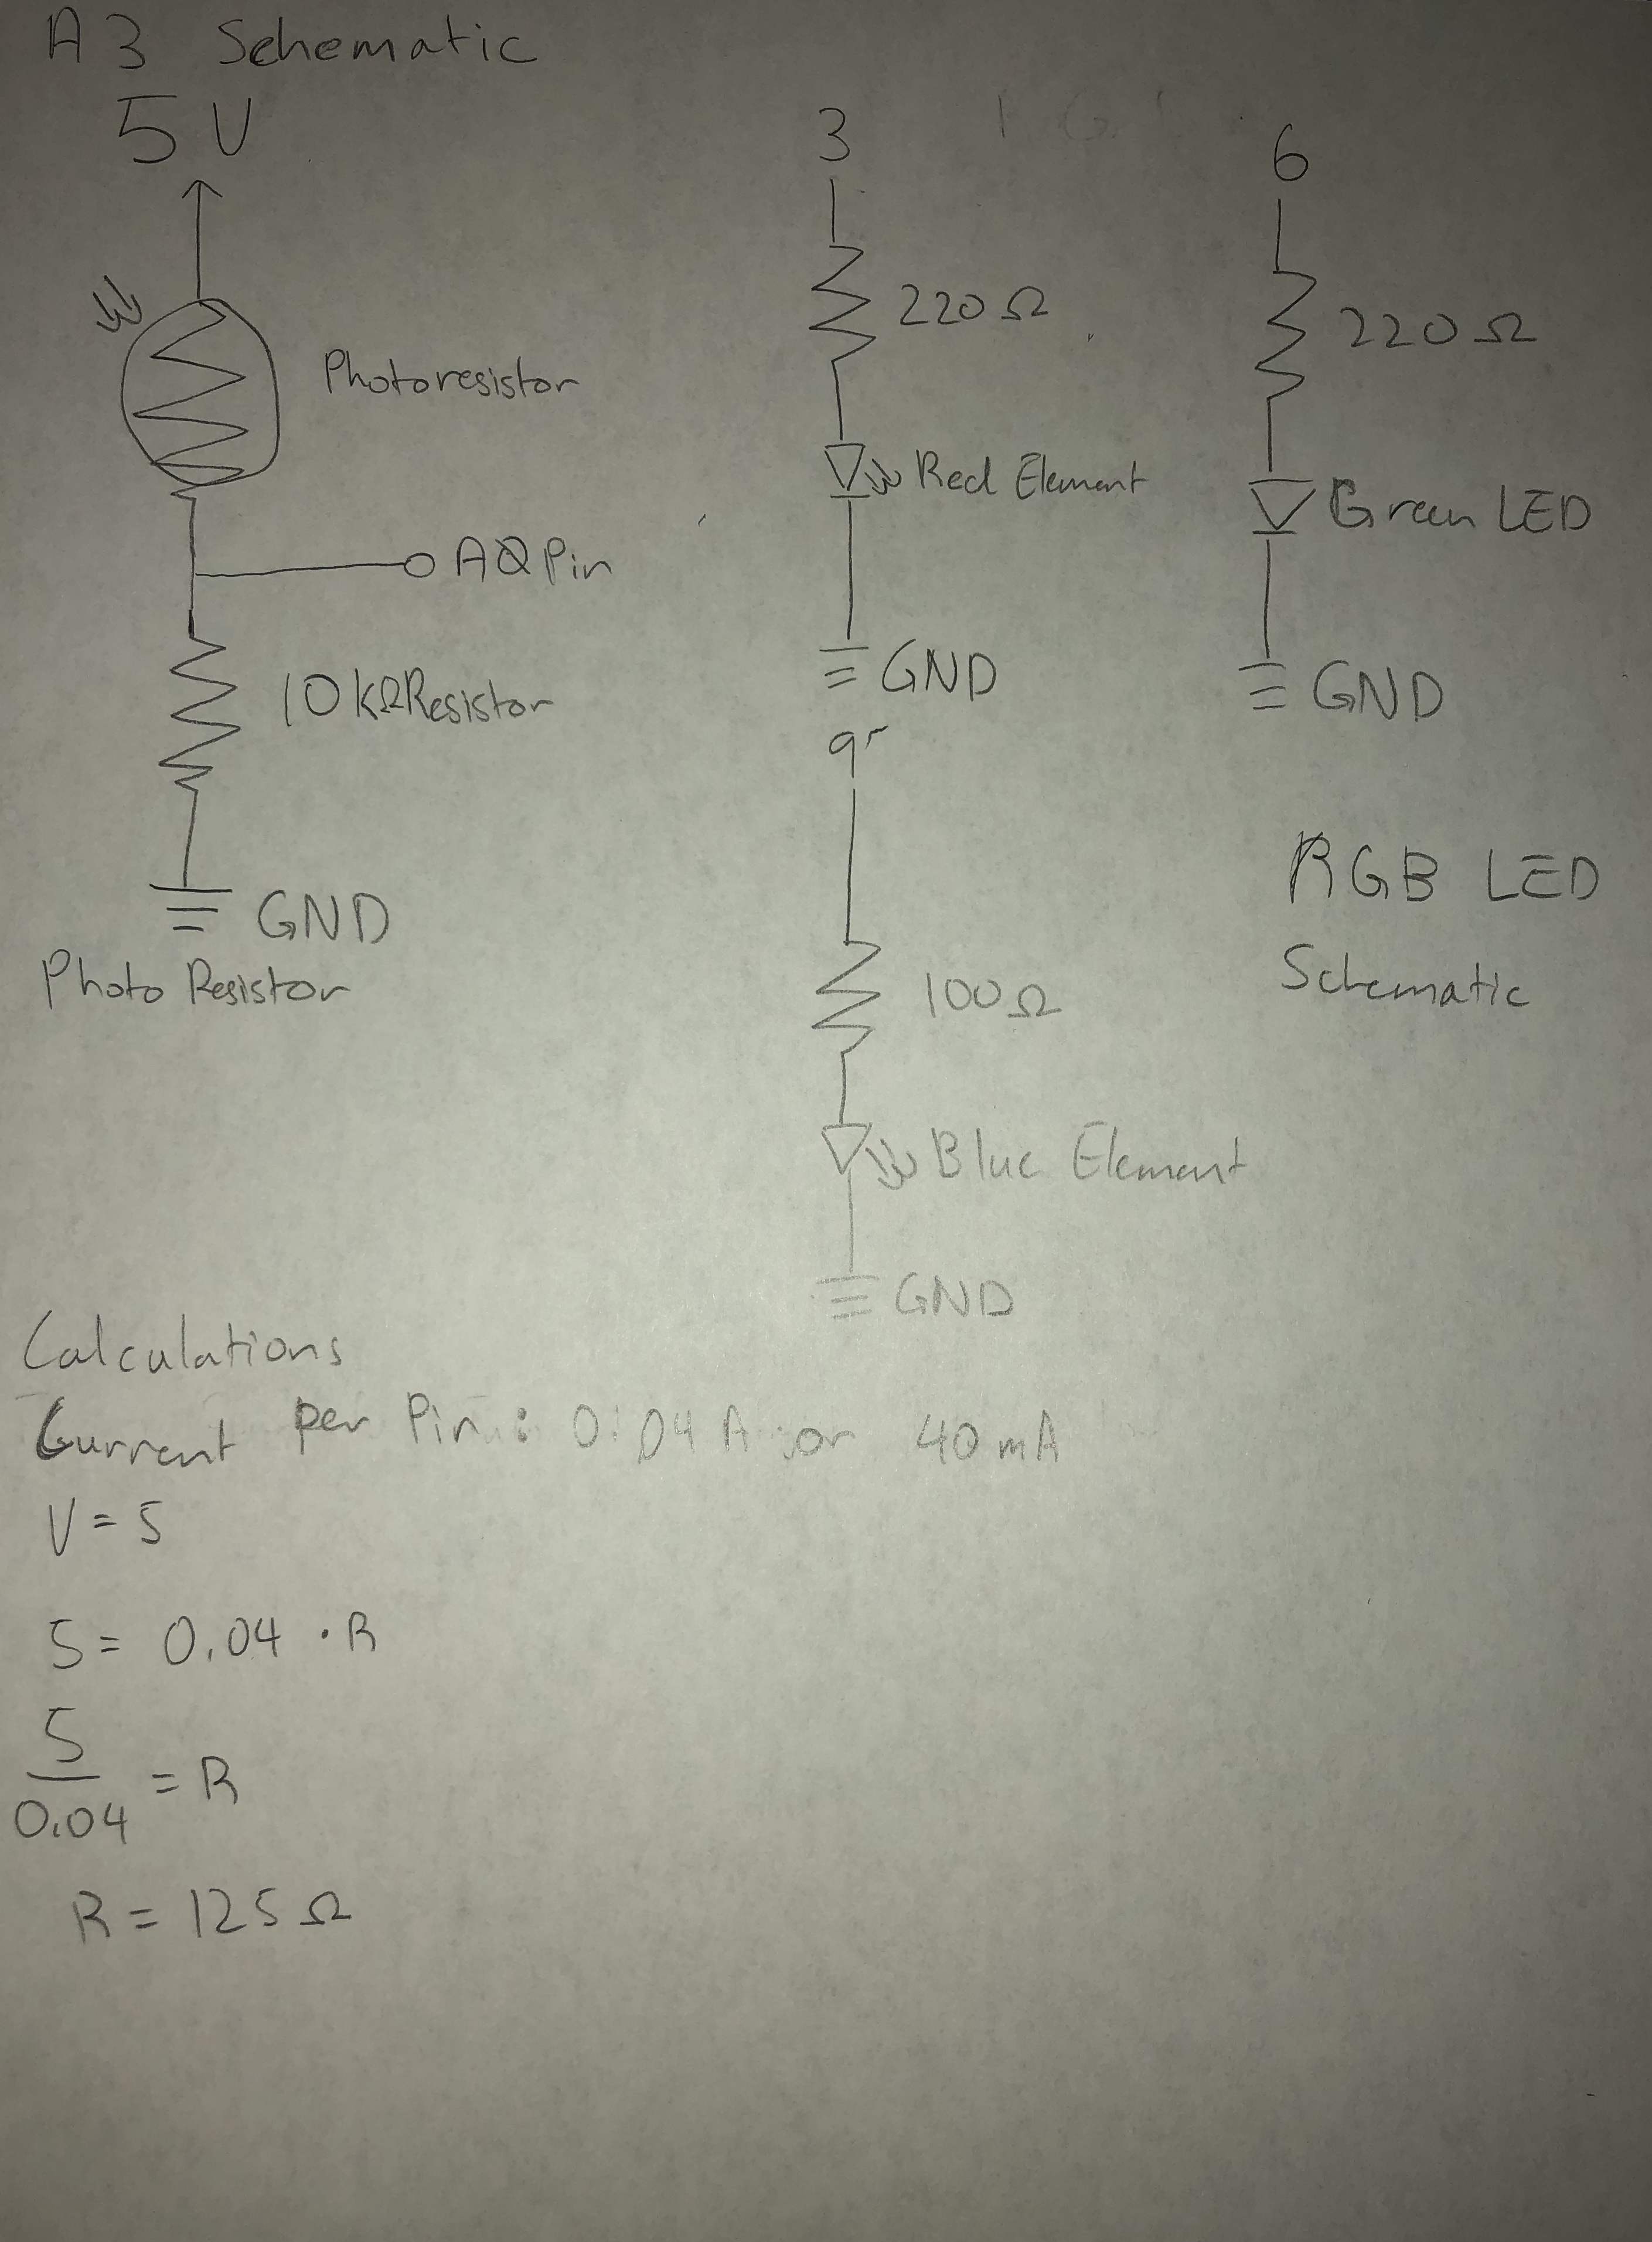 A3 Schematic
5V
Photoresistor
A0 Pin
10kΩ Resistor
GND
Photo Resistor
3
220Ω
Red Element
GND
6
220Ω
Green LED
GND
9
100Ω
Blue Element
GND
RGB LED
Schematic
Calculations
Current per Pin: 0.04 A or 40 mA
V = 5
5 = 0.04 · R
5
0.04
= R
R = 125 Ω